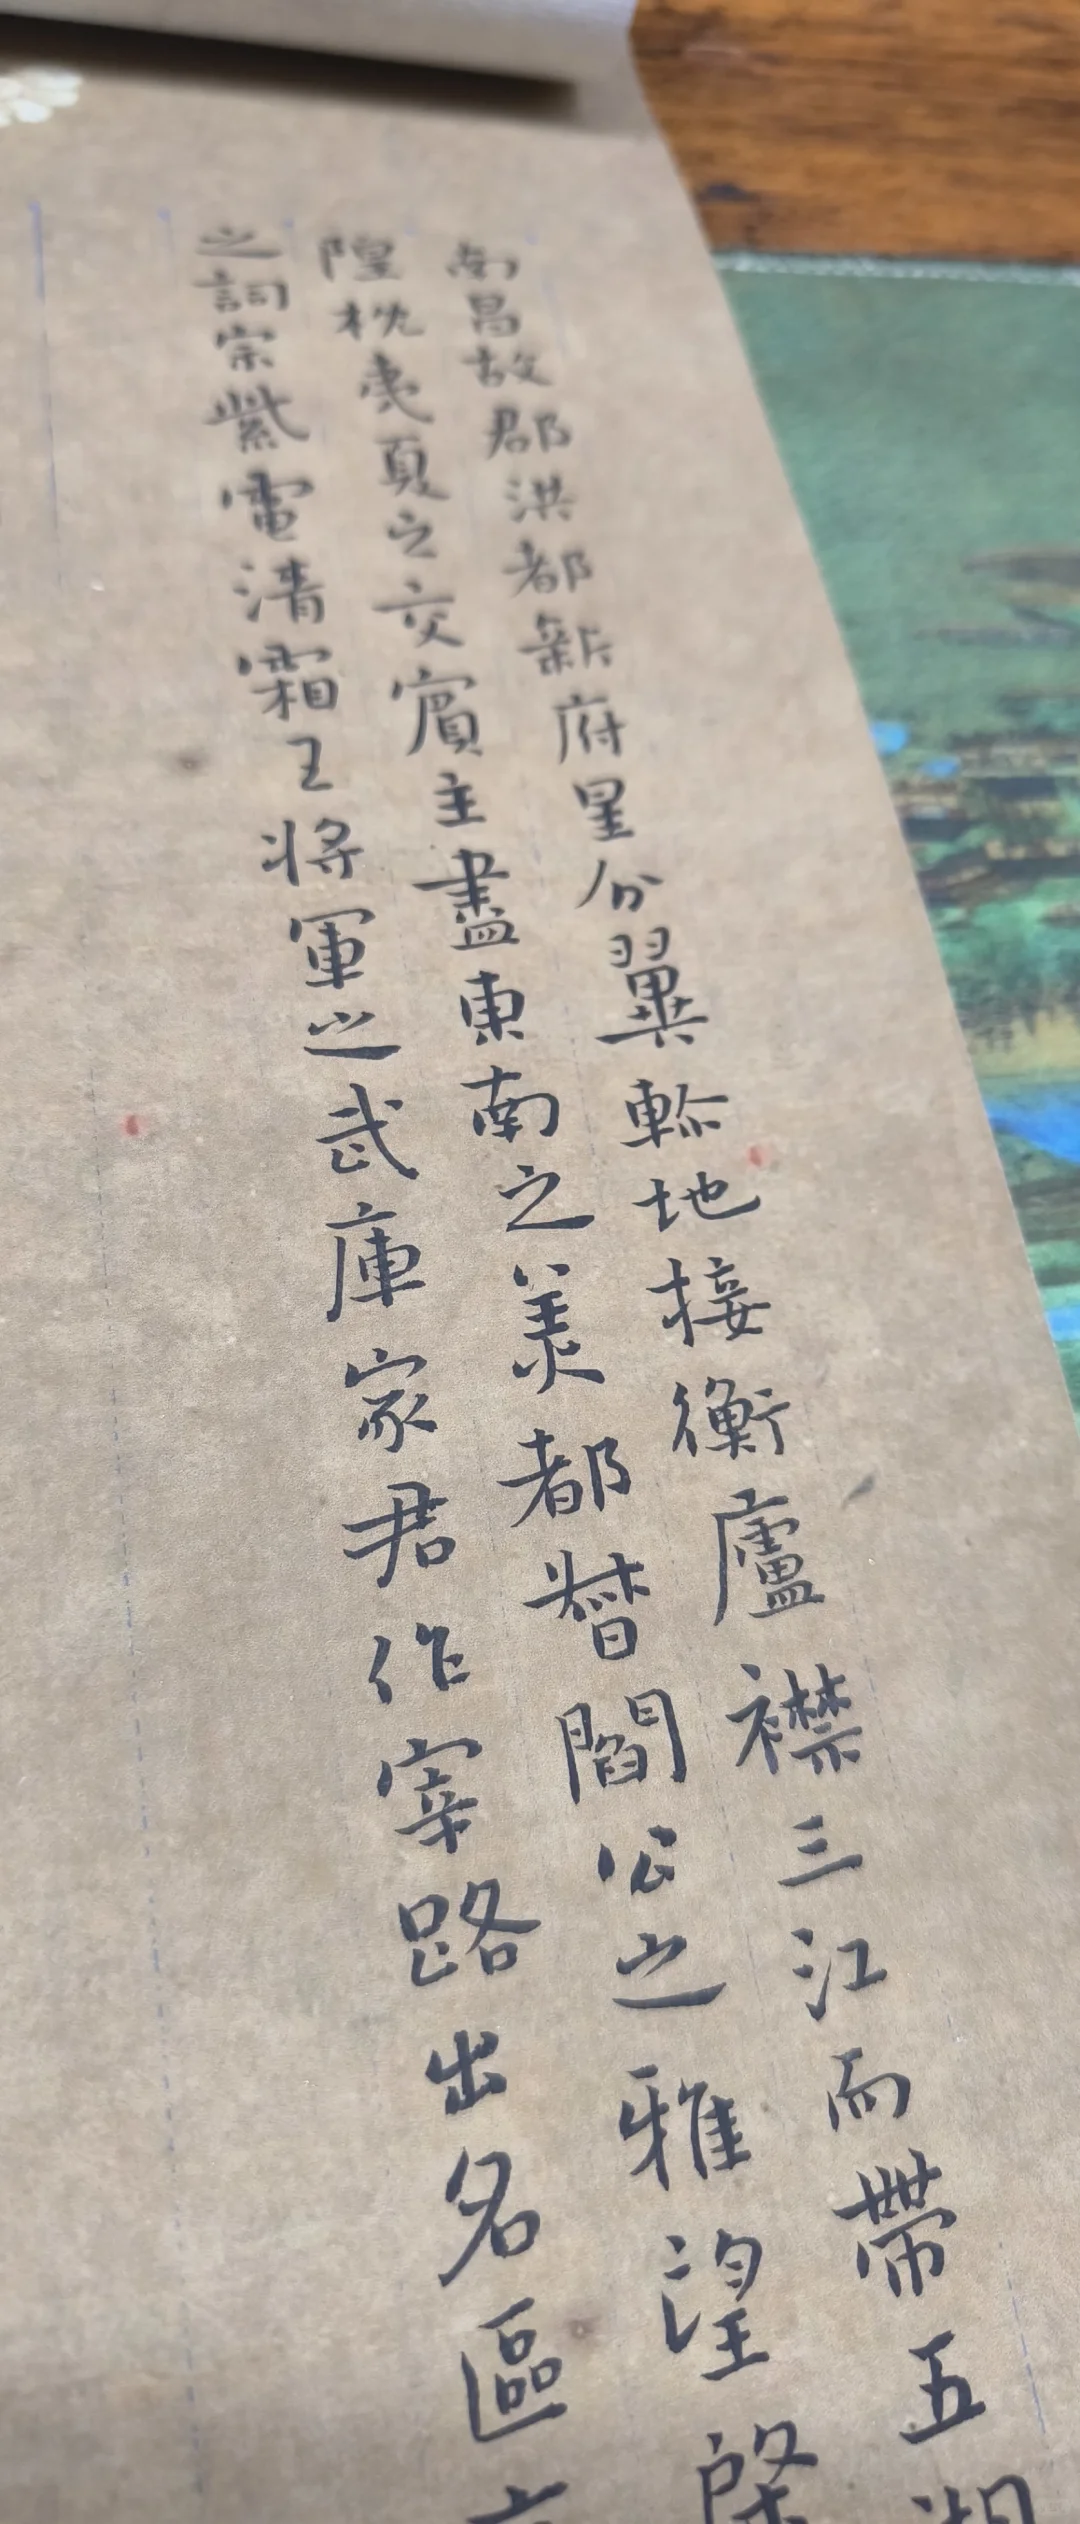 南昌故郡洪都新府星分翼軫地接衡廬襟三江而帶五湖
隍枕夷夏之交賓主盡東南之美都督閻公之雅望棨
之詞宗紫電清霜王將軍之武庫家君作宰路出名區